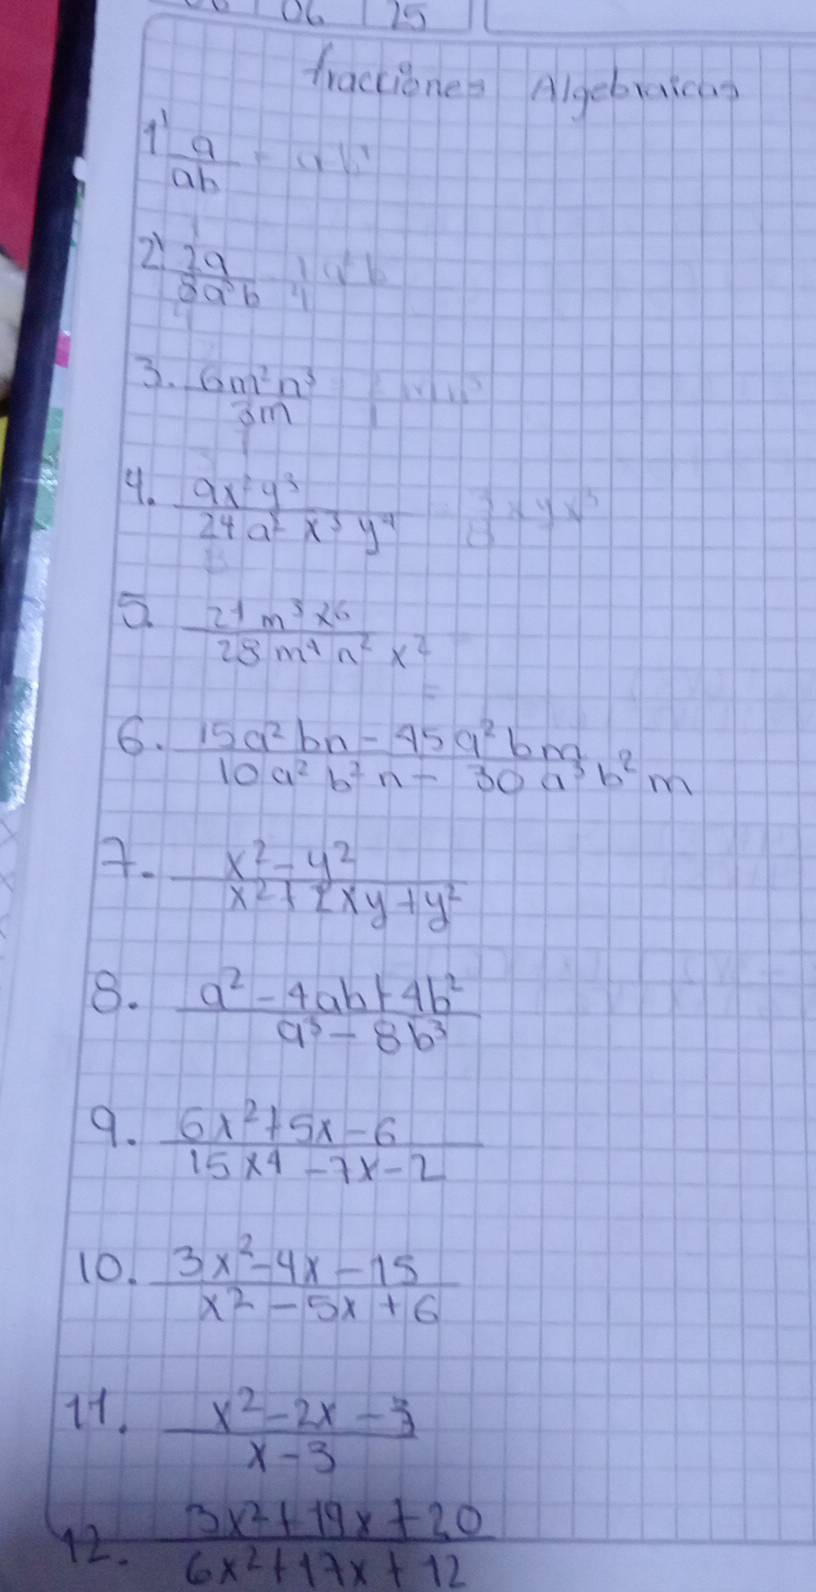 06 25
fracciones Algebraicas
1' a/ab = ab
2' 2a/8a³b 1/4
3. 6m²n³/3m
4. 9x²y³/24a²x³y⁴
5. 21m³x6/28m⁴n²x²
=
6. 15a²bn-45a²bm/10a²b²n-30a³b²m
7. x²-y²/x²+2xy+y²
8. a²-4ab+4b²/a³-8b³
9. 6x²+5x-6/15x4-7x-2
10. 3x²-4x-15/x²-5x+6
11. x²-2x-3/x-3
12. 3x²+19x+20/6x²+17x+12